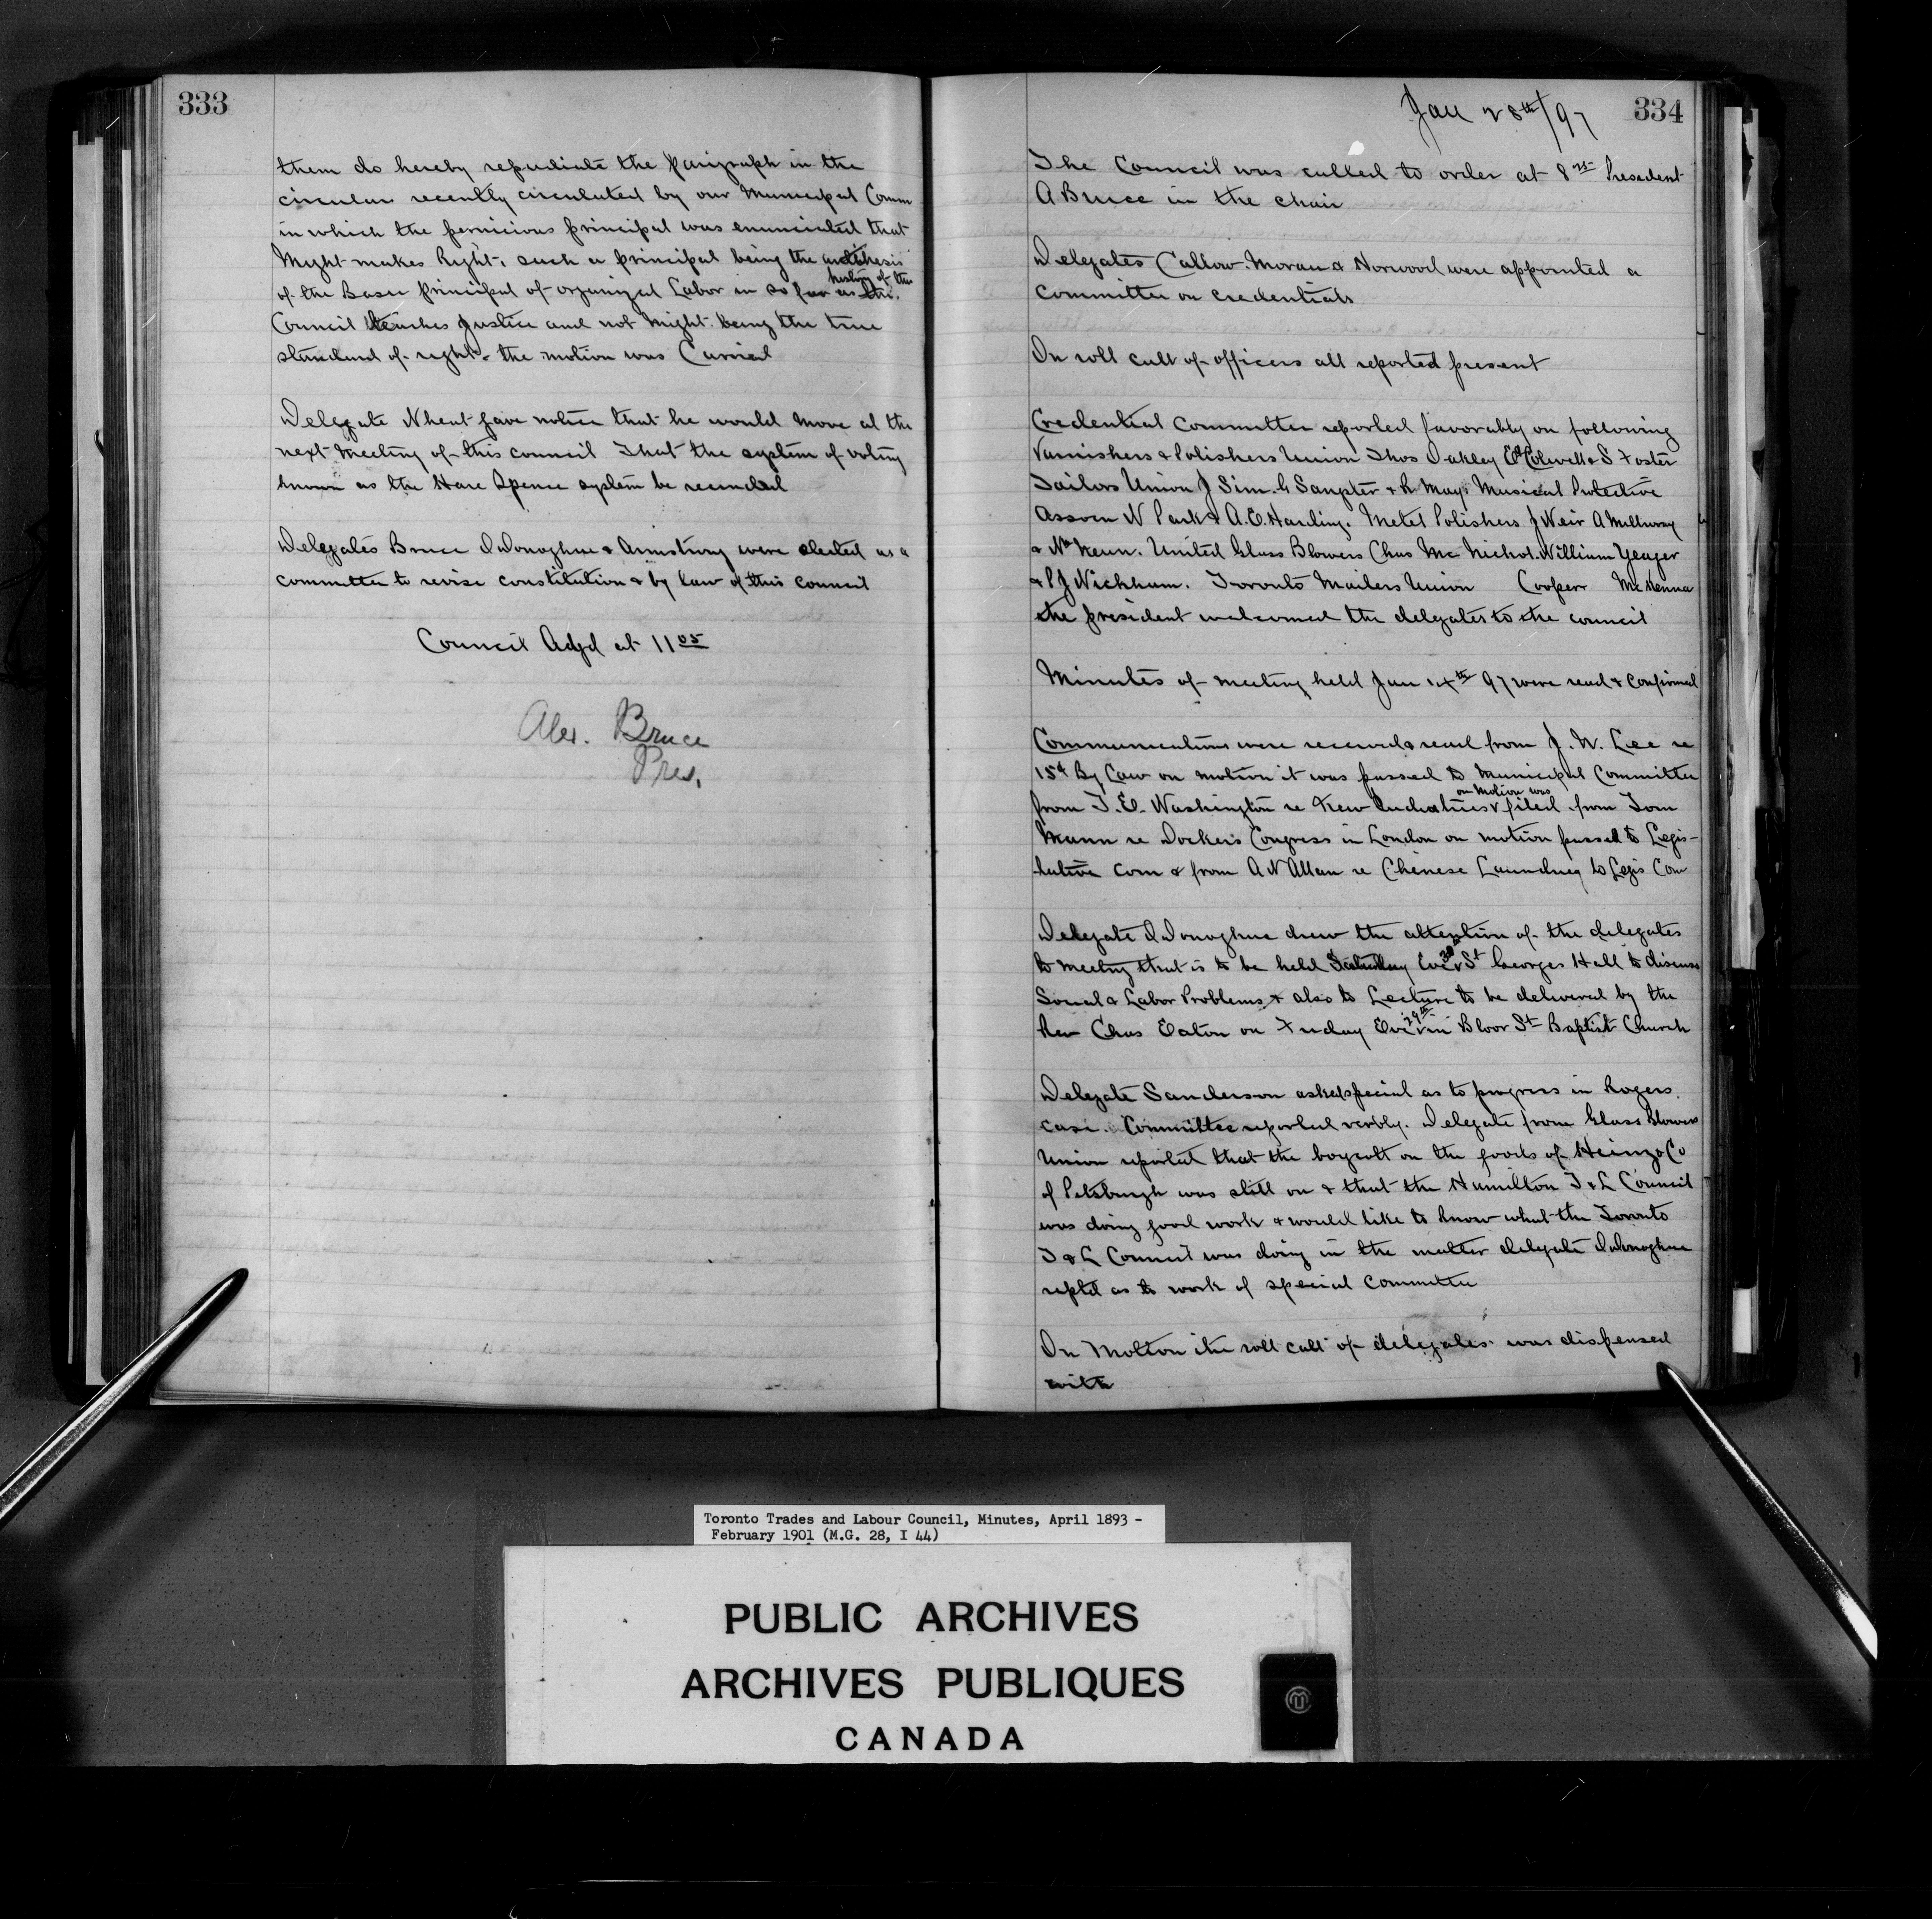 333
them do hereby repudiate the paragraph in the
circular recently circulated by our Municipal Comm
in which the pernicious principal was enunciated that
Might makes Right, such a principal being the antithesis
of the Basic principal of organized Labor in so far as the history of this
Council teaches Justice and not Might being the true
standard of right & the motion was Carried
Delegate Wheat gave notice that he would move at the
next meeting of this council That the system of voting
known as the Hare Spence system be recinded
Delegates Bruce O'Donoghue & Armstrong were elected as a
committee to revise constitution & by law of this council
Council Adjd at 11 05
Alex. Bruce
Pres.
334
Jan 28th/97
The Council was called to order at 8 Presedent
A Bruce in the chair
Delegates Callow. Moran & Norwood were appointed a
committee on credentials
On roll call of officers all reported present
Credential Committee reported favorably on following
Varnishers & Polishers Union Thos Oakley Ed Colwell & S Foster
Tailors Union J Sim. G Sangster & R Mays Musical Protective
Assocn N Park & A.E. Harding. Metel Polishers J Weir A Milloway
& Wm Keun. United Glass Blowers Chas Mc Nichol. William Yeager
& P J Wickham. Toronto Mailers Union Cooper McKenna
the president welcomed the delegates to the council
Minutes of meeting held Jan 14th 97 were read & confirmed
Communications were received & read from J. W. Lee re
15¢ By Law on motion it was passed to Municipal Committee
from T. E. Washington re New Industries & on motion was filed from Tom
Mann re Dockers Congress in London on motion passed to Legis-
lative com & from A W Allan re Chinese Laundrey to Legis Com
Delegate O'Donoghue drew the attention of the delegates
to meeting that is to be held Saturday Eve 30 St Georges Hall to discuss
Social & Labor Problems & also to Lecture to be delivered by the
Rev Chas Eaton on Friday Eve 29th in Bloor St Baptist Church
Delegate Sanderson asked special as to progress in Rogers
case. Committee reported verbly. Delegate from Glass Blowers
Union reported that the boycott on the goods of Heinz & Co
of Pitsburgh was still on & that the Hamilton T & L Council
was doing good work & would like to know what the Toronto
T & L Council was doing in the matter delegate O'Donoghue
reptd as to work of special Committee
On Motion the roll call of delegates was dispensed
with
Toronto Trades and Labour Council, Minutes, April 1893 -
February 1901 (M.G. 28, I 44)
PUBLIC ARCHIVES
ARCHIVES PUBLIQUES
CANADA